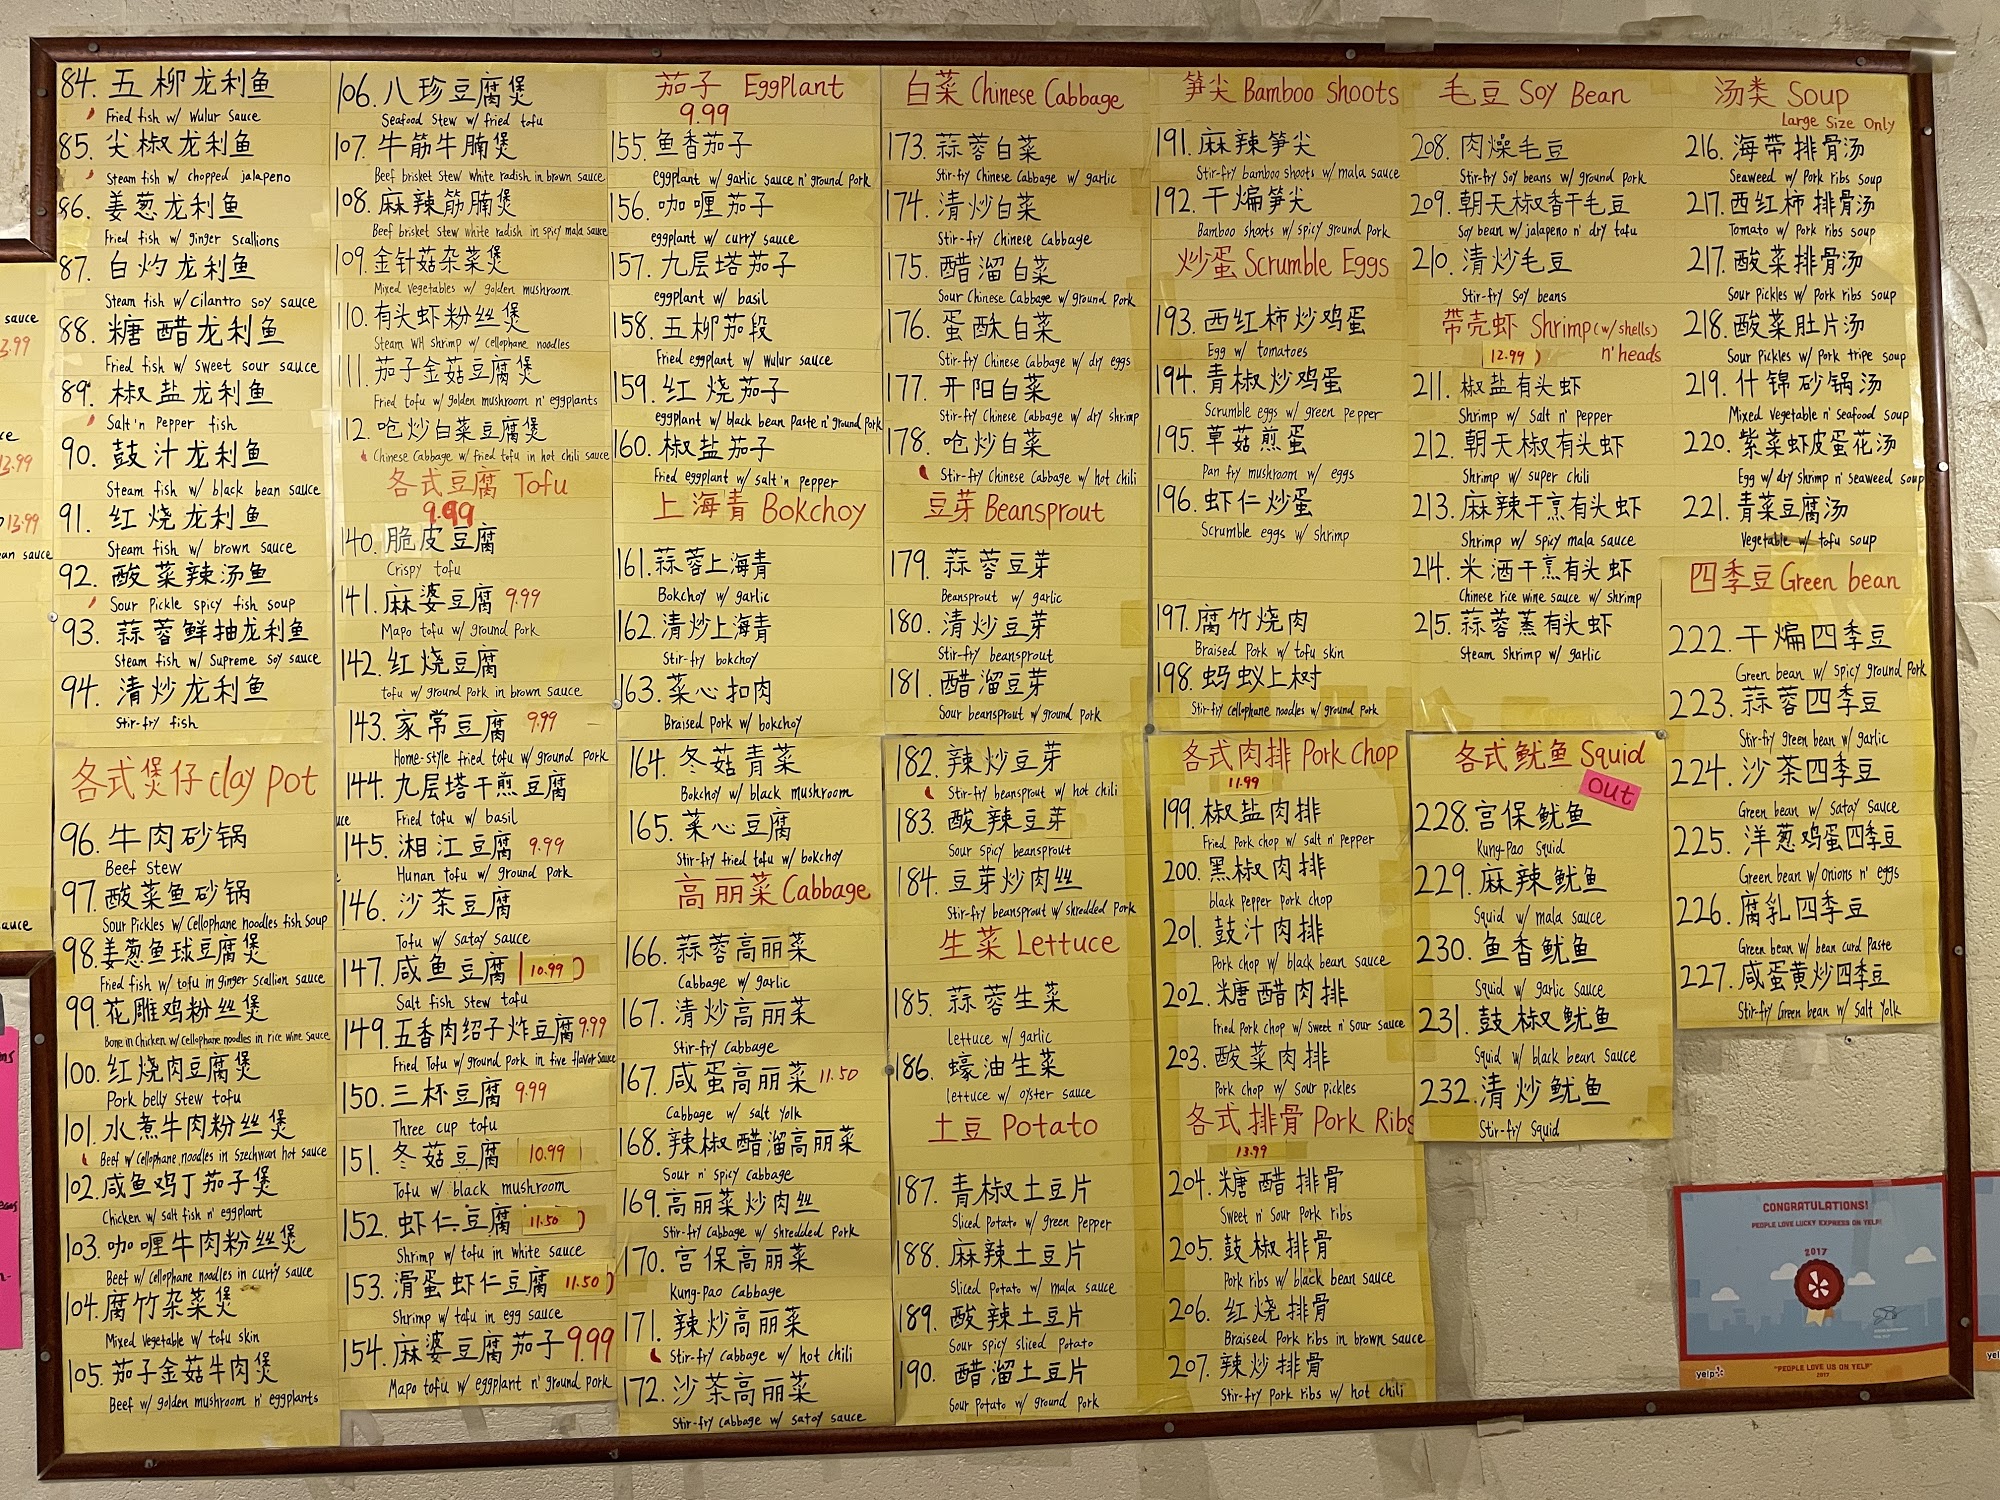 sauce
3.99
ce
13.99
13.99
ean sauce
auce
84. 五柳龙利鱼
Fried fish w/ Wulur Sauce
85. 尖椒龙利鱼
Steam fish w/ chopped jalapeno
86. 姜葱龙利鱼
Fried fish w/ ginger scallions
87. 白灼龙利鱼
Steam fish w/ Cilantro soy sauce
88. 糖醋龙利鱼
Fried fish w/ sweet sour sauce
89. 椒盐龙利鱼
Salt'n Pepper fish
90. 鼓汁龙利鱼
Steam fish w/ black bean sauce
91. 红烧龙利鱼
Steam fish w/ brown sauce
92. 酸菜辣汤鱼
Sour Pickle spicy fish soup
93. 蒜蓉鲜抽龙利鱼
Steam fish w/ Supreme soy sauce
94. 清炒龙利鱼
Stir-fry fish
各式煲仔 clay pot
96. 牛肉砂锅
Beef stew
97. 酸菜鱼砂锅
Sour Pickles w/ Cellophane noodles fish soup
98. 姜葱鱼球豆腐煲
Fried fish w/ tofu in ginger scallion sauce
99. 花雕鸡粉丝煲
Bone in Chicken w/ Cellophane noodles in rice wine sauce
100. 红烧肉豆腐煲
Pork belly stew tofu
101. 水煮牛肉粉丝煲
Beef w/ Cellophane noodles in Szechwan hot sauce
102. 咸鱼鸡丁茄子煲
Chicken w/ salt fish n' eggplant
103. 咖喱牛肉粉丝煲
Beef w/ Cellophane noodles in curry sauce
104. 腐竹杂菜煲
Mixed Vegetable w/ tofu skin
105. 茄子金菇牛肉煲
Beef w/ golden mushroom n' eggplants
106. 八珍豆腐煲
Seafood stew w/ fried tofu
107. 牛筋牛腩煲
Beef brisket stew white radish in brown sauce
108. 麻辣筋腩煲
Beef brisket stew white radish in spicy mala sauce
109. 金针菇杂菜煲
Mixed Vegetables w/ golden mushroom
110. 有头虾粉丝煲
Steam WH shrimp w/ cellophane noodles
111. 茄子金菇豆腐煲
Fried tofu w/ golden mushroom n' eggplants
112. 呛炒白菜豆腐煲
Chinese Cabbage w/ fried tofu in hot chili sauce
各式豆腐 Tofu
9.99
140. 脆皮豆腐
Crispy tofu
141. 麻婆豆腐 9.99
Mapo tofu w/ ground pork
142. 红烧豆腐
tofu w/ ground pork in brown sauce
143. 家常豆腐 9.99
Home-style fried tofu w/ ground pork
144. 九层塔干煎豆腐
Fried tofu w/ basil
145. 湘江豆腐 9.99
Hunan tofu w/ ground pork
146. 沙茶豆腐
Tofu w/ satay sauce
147. 咸鱼豆腐 10.99
Salt fish stew tofu
149. 五香肉绍子炸豆腐 9.99
Fried Tofu w/ ground pork in five flavor sauce
150. 三杯豆腐 9.99
Three cup tofu
151. 冬菇豆腐 10.99
Tofu w/ black mushroom
152. 虾仁豆腐 11.50
Shrimp w/ tofu in white sauce
153. 滑蛋虾仁豆腐 11.50
Shrimp w/ tofu in egg sauce
154. 麻婆豆腐茄子 9.99
Mapo tofu w/ eggplant n' ground pork
茄子 EggPlant
9.99
155. 鱼香茄子
eggplant w/ garlic sauce n' ground pork
156. 咖喱茄子
eggplant w/ curry sauce
157. 九层塔茄子
eggplant w/ basil
158. 五柳茄段
Fried eggplant w/ Wulur sauce
159. 红烧茄子
eggplant w/ black bean Paste n' ground pork
160. 椒盐茄子
Fried eggplant w/ salt'n pepper
上海青 Bokchoy
161. 蒜蓉上海青
Bokchoy w/ garlic
162. 清炒上海青
Stir-fry bokchoy
163. 菜心扣肉
Braised Pork w/ bokchoy
164. 冬菇青菜
Bokchoy w/ black mushroom
165. 菜心豆腐
Stir-fry fried tofu w/ bokchoy
高丽菜 Cabbage
166. 蒜蓉高丽菜
Cabbage w/ garlic
167. 清炒高丽菜
Stir-fry Cabbage
167. 咸蛋高丽菜 11.50
Cabbage w/ salt Yolk
168. 辣椒醋溜高丽菜
Sour n' spicy Cabbage
169. 高丽菜炒肉丝
Stir-fry Cabbage w/ shredded pork
170. 宫保高丽菜
Kung-Pao Cabbage
171. 辣炒高丽菜
Stir-fry Cabbage w/ hot chili
172. 沙茶高丽菜
Stir-fry Cabbage w/ satay sauce
白菜 Chinese Cabbage
173. 蒜蓉白菜
Stir-fry Chinese Cabbage w/ garlic
174. 清炒白菜
Stir-fry Chinese Cabbage
175. 醋溜白菜
Sour Chinese Cabbage w/ ground pork
176. 蛋酥白菜
Stir-fry Chinese Cabbage w/ dry eggs
177. 开阳白菜
Stir-fry Chinese Cabbage w/ dry shrimp
178. 呛炒白菜
Stir-fry Chinese Cabbage w/ hot chili
豆芽 Beansprout
179. 蒜蓉豆芽
Beansprout w/ garlic
180. 清炒豆芽
Stir-fry beansprout
181. 醋溜豆芽
Sour beansprout w/ ground pork
182. 辣炒豆芽
Stir-fry beansprout w/ hot chili
183. 酸辣豆芽
Sour spicy beansprout
184. 豆芽炒肉丝
Stir-fry beansprout w/ shredded pork
生菜 Lettuce
185. 蒜蓉生菜
lettuce w/ garlic
186. 蠔油生菜
lettuce w/ oyster sauce
土豆 Potato
187. 青椒土豆片
Sliced Potato w/ green pepper
188. 麻辣土豆片
Sliced Potato w/ mala sauce
189. 酸辣土豆片
Sour spicy sliced Potato
190. 醋溜土豆片
Sour Potato w/ ground pork
笋尖 Bamboo Shoots
191. 麻辣笋尖
Stir-fry bamboo shoots w/ mala sauce
192. 干煸笋尖
Bamboo shoots w/ spicy ground pork
炒蛋 Scrumble Eggs
193. 西红柿炒鸡蛋
Egg w/ tomatoes
194. 青椒炒鸡蛋
Scrumble eggs w/ green pepper
195. 草菇煎蛋
Pan fry mushroom w/ eggs
196. 虾仁炒蛋
Scrumble eggs w/ shrimp
197. 腐竹烧肉
Braised Pork w/ tofu skin
198. 蚂蚁上树
Stir-fry cellophane noodles w/ ground pork
各式肉排 Pork Chop
11.99
199. 椒盐肉排
Fried Pork chop w/ salt n' pepper
200. 黑椒肉排
black Pepper pork chop
201. 鼓汁肉排
Pork chop w/ black bean sauce
202. 糖醋肉排
Fried Pork chop w/ Sweet n' Sour sauce
203. 酸菜肉排
Pork chop w/ sour pickles
各式排骨 Pork Ribs
13.99
204. 糖醋排骨
Sweet n' Sour Pork ribs
205. 鼓椒排骨
Pork ribs w/ black bean sauce
206. 红烧排骨
Braised Pork ribs in brown sauce
207. 辣炒排骨
Stir-fry Pork ribs w/ hot chili
毛豆 Soy Bean
208. 肉燥毛豆
Stir-fry Soy beans w/ ground pork
209. 朝天椒香干毛豆
Soy bean w/ jalapeno n' dry tofu
210. 清炒毛豆
Stir-fry Soy beans
带壳虾 Shrimp (w/ shells)
12.99 n' heads
211. 椒盐有头虾
Shrimp w/ Salt n' Pepper
212. 朝天椒有头虾
Shrimp w/ super chili
213. 麻辣干烹有头虾
Shrimp w/ spicy mala sauce
214. 米酒干烹有头虾
Chinese rice wine sauce w/ shrimp
215. 蒜蓉蒸有头虾
Steam shrimp w/ garlic
各式鱿鱼 Squid
Out
228. 宫保鱿鱼
Kung-Pao Squid
229. 麻辣鱿鱼
Squid w/ mala sauce
230. 鱼香鱿鱼
Squid w/ garlic sauce
231. 鼓椒鱿鱼
Squid w/ black bean sauce
232. 清炒鱿鱼
Stir-fry Squid
汤类 Soup
Large Size Only
216. 海带排骨汤
Seaweed w/ Pork ribs soup
217. 西红柿排骨汤
Tomato w/ Pork ribs soup
217. 酸菜排骨汤
Sour Pickles w/ Pork ribs soup
218. 酸菜肚片汤
Sour Pickles w/ Pork tripe soup
219. 什锦砂锅汤
Mixed Vegetable n' Seafood soup
220. 紫菜虾皮蛋花汤
Egg w/ dry shrimp n' seaweed soup
221. 青菜豆腐汤
Vegetable w/ tofu soup
四季豆 Green bean
222. 干煸四季豆
Green bean w/ spicy ground pork
223. 蒜蓉四季豆
Stir-fry green bean w/ garlic
224. 沙茶四季豆
Green bean w/ Satay Sauce
225. 洋葱鸡蛋四季豆
Green bean w/ Onions n' eggs
226. 腐乳四季豆
Green bean w/ bean curd Paste
227. 咸蛋黄炒四季豆
Stir-fry Green bean w/ Salt Yolk
CONGRATULATIONS!
PEOPLE LOVE LUCKY EXPRESS ON YELP!
2017
yelp
"PEOPLE LOVE US ON YELP"
2017
yel